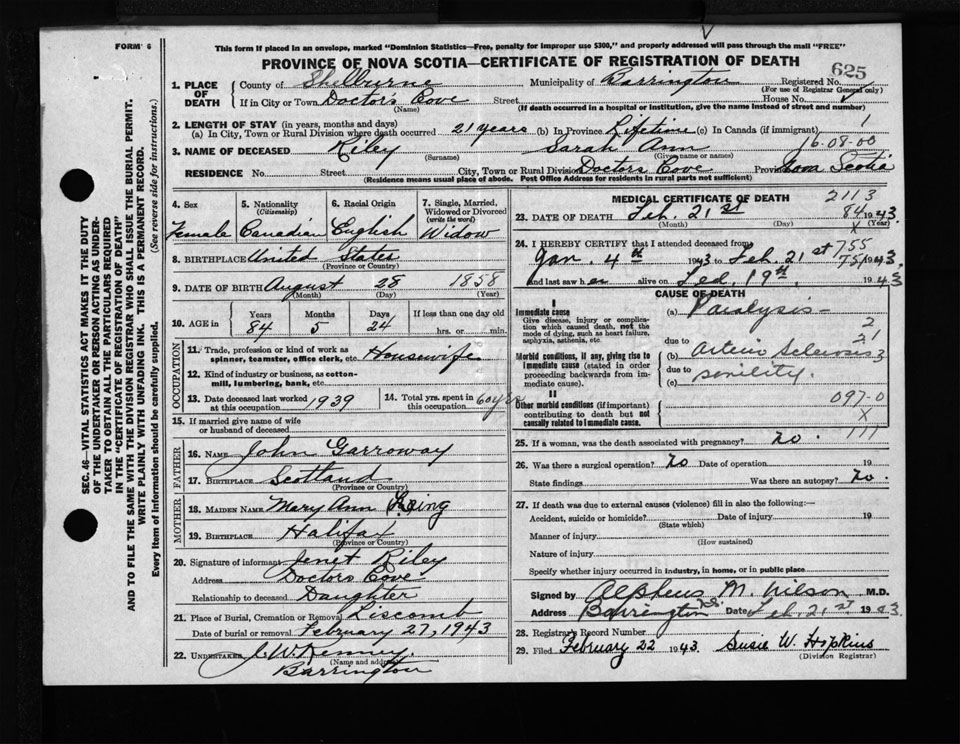 FORM 6
This form if placed in an envelope, marked "Dominion Statistics—Free, penalty for improper use $300," and properly addressed will pass through the mail "FREE"
PROVINCE OF NOVA SCOTIA—CERTIFICATE OF REGISTRATION OF DEATH
625
1. PLACE OF DEATH County of Shelburne Municipality of Barrington Registered No.
(For use of Registrar General only)
If in City or Town Doctor's Cove Street House No.
(Name) (If death occurred in a hospital or institution, give the name instead of street and number)
2. LENGTH OF STAY (in years, months and days)
(a) In City, Town or Rural Division where death occurred 21 years (b) In Province Lifetime (c) In Canada (if immigrant) 1
3. NAME OF DECEASED Riley Sarah Ann 16-08-00
(Surname) (Given name or names)
RESIDENCE No. Street City, Town or Rural Division Doctors Cove Province Nova Scotia
(Residence means usual place of abode. Post Office Address for residents in rural parts not sufficient)
SEC. 46—VITAL STATISTICS ACT MAKES IT THE DUTY
OF THE UNDERTAKER OR PERSON ACTING AS UNDER-
TAKER TO OBTAIN ALL THE PARTICULARS REQUIRED
IN THE "CERTIFICATE OF REGISTRATION OF DEATH"
AND TO FILE THE SAME WITH THE DIVISION REGISTRAR WHO SHALL ISSUE THE BURIAL PERMIT.
WRITE PLAINLY WITH UNFADING INK. THIS IS A PERMANENT RECORD.
Every item of information should be carefully supplied. (See reverse side for instructions.)
4. Sex Female
5. Nationality (Citizenship) Canadian
6. Racial Origin English
7. Single, Married, Widowed or Divorced (write the word) Widow
8. BIRTHPLACE United States
(Province or Country)
9. DATE OF BIRTH August 28 1858
(Month) (Day) (Year)
10. AGE in Years 84 Months 5 Days 24 If less than one day old hrs. or min.
OCCUPATION
11. Trade, profession or kind of work as spinner, teamster, office clerk, etc. Housewife
12. Kind of industry or business, as cotton-mill, lumbering, bank, etc.
13. Date deceased last worked at this occupation 1939
14. Total yrs. spent in this occupation 60 yrs
15. If married give name of wife or husband of deceased
FATHER
16. NAME John Garroway
17. BIRTHPLACE Scotland
(Province or Country)
MOTHER
18. MAIDEN NAME Mary Ann
19. BIRTHPLACE Halifax
(Province or Country)
20. Signature of informant Jenet Riley
Address Doctors Cove
Relationship to deceased Daughter
21. Place of Burial, Cremation or Removal Liscomb
Date of burial or removal February 27, 1943
22. UNDERTAKER
(Name and address)
Barrington
MEDICAL CERTIFICATE OF DEATH 2113
23. DATE OF DEATH Feb. 21st 84 1943
(Month) (Day) X (Year)
24. I HEREBY CERTIFY that I attended deceased from 755
Jan. 4th 1943 to Feb. 21st 1943
and last saw her alive on Fed. 19th 1943
CAUSE OF DEATH
I
Immediate cause
Give disease, injury or complication which caused death, not the mode of dying, such as heart failure, asphyxia, asthenia, etc.
(a) Paralysis
due to
Morbid conditions, if any, giving rise to immediate cause (stated in order proceeding backwards from immediate cause).
(b) Arterio Sclerosis
due to
(c) senility.
II
Other morbid conditions (if important) contributing to death but not causally related to immediate cause.
097-0
X
25. If a woman, was the death associated with pregnancy? no.
26. Was there a surgical operation? no Date of operation 19
State findings Was there an autopsy? no.
27. If death was due to external causes (violence) fill in also the following:—
Accident, suicide or homicide? Date of injury 19
(State which)
Manner of injury
(How sustained)
Nature of injury
Specify whether injury occurred in industry, in home, or in public place
Signed by Alpheus M. Wilson M.D.
Address Barrington Date Feb. 21st 1943
28. Registrar's Record Number
29. Filed February 22 1943. Susie W. Hopkins
(Division Registrar)